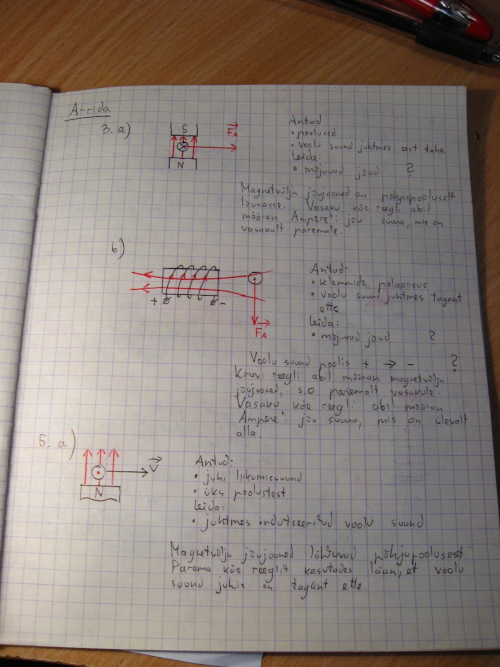 A-rida
3. a)
S
N
F_A
Antud
• poolused
• voolu suund juhtmes eest taha
Leida:
• mõjuvad jõud ?
Magnetvälja jõujooned on põhjapooluselt
lõunasse. Vasaku käe reegli abil
määran Ampere'i jõu suuna, mis on
vasakult paremale
b)
+ -
F_A
Antud:
• klemmide polaarsus
• voolu suund juhtmes tagant
ette
Leida:
• mõjuvad jõud ?
Voolu suund poolis + → - ?
Kruvi reegli abil määran magnetvälja
jõujooned, s.o paremalt vasakule.
Vasaku käe reegli abil määran
Ampere' jõu suuna, mis on ülevalt
alla.
5. a)
v
N
Antud:
• juhi liikumissuund
• üks poolustest
Leida:
• juhtmes indutseeritud voolu suund
Magnetvälja jõujooned lähtuvad põhjapoolusest
Parema käe reeglit kasutades leian, et voolu
suund juhis on tagant ette.